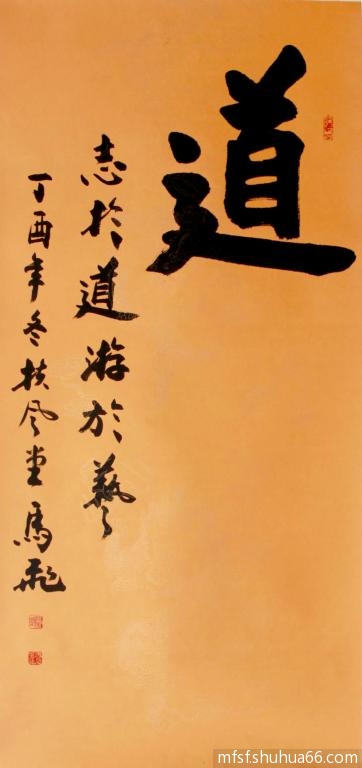 道
志於道游於藝
丁酉年冬扶风堂馬飛
mfsf.shuhua66.com